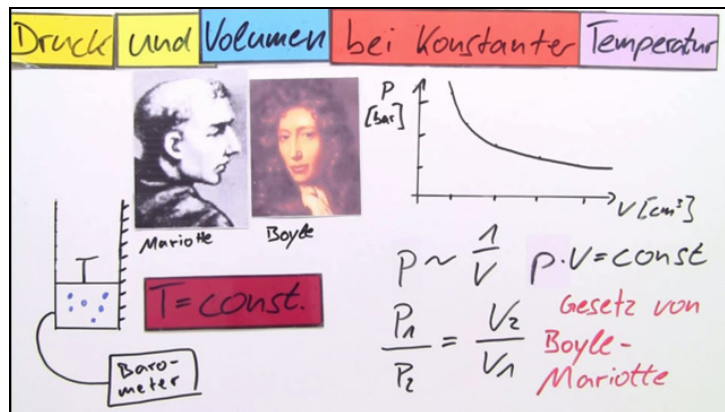 Druck und Volumen bei Konstanter Temperatur
P
[bar]
V [cm³]
Mariotte
Boyle
T = const.
Baro-
meter
P ~ 1/V
p · V = const
P₁/P₂ = V₂/V₁
Gesetz von
Boyle-
Mariotte